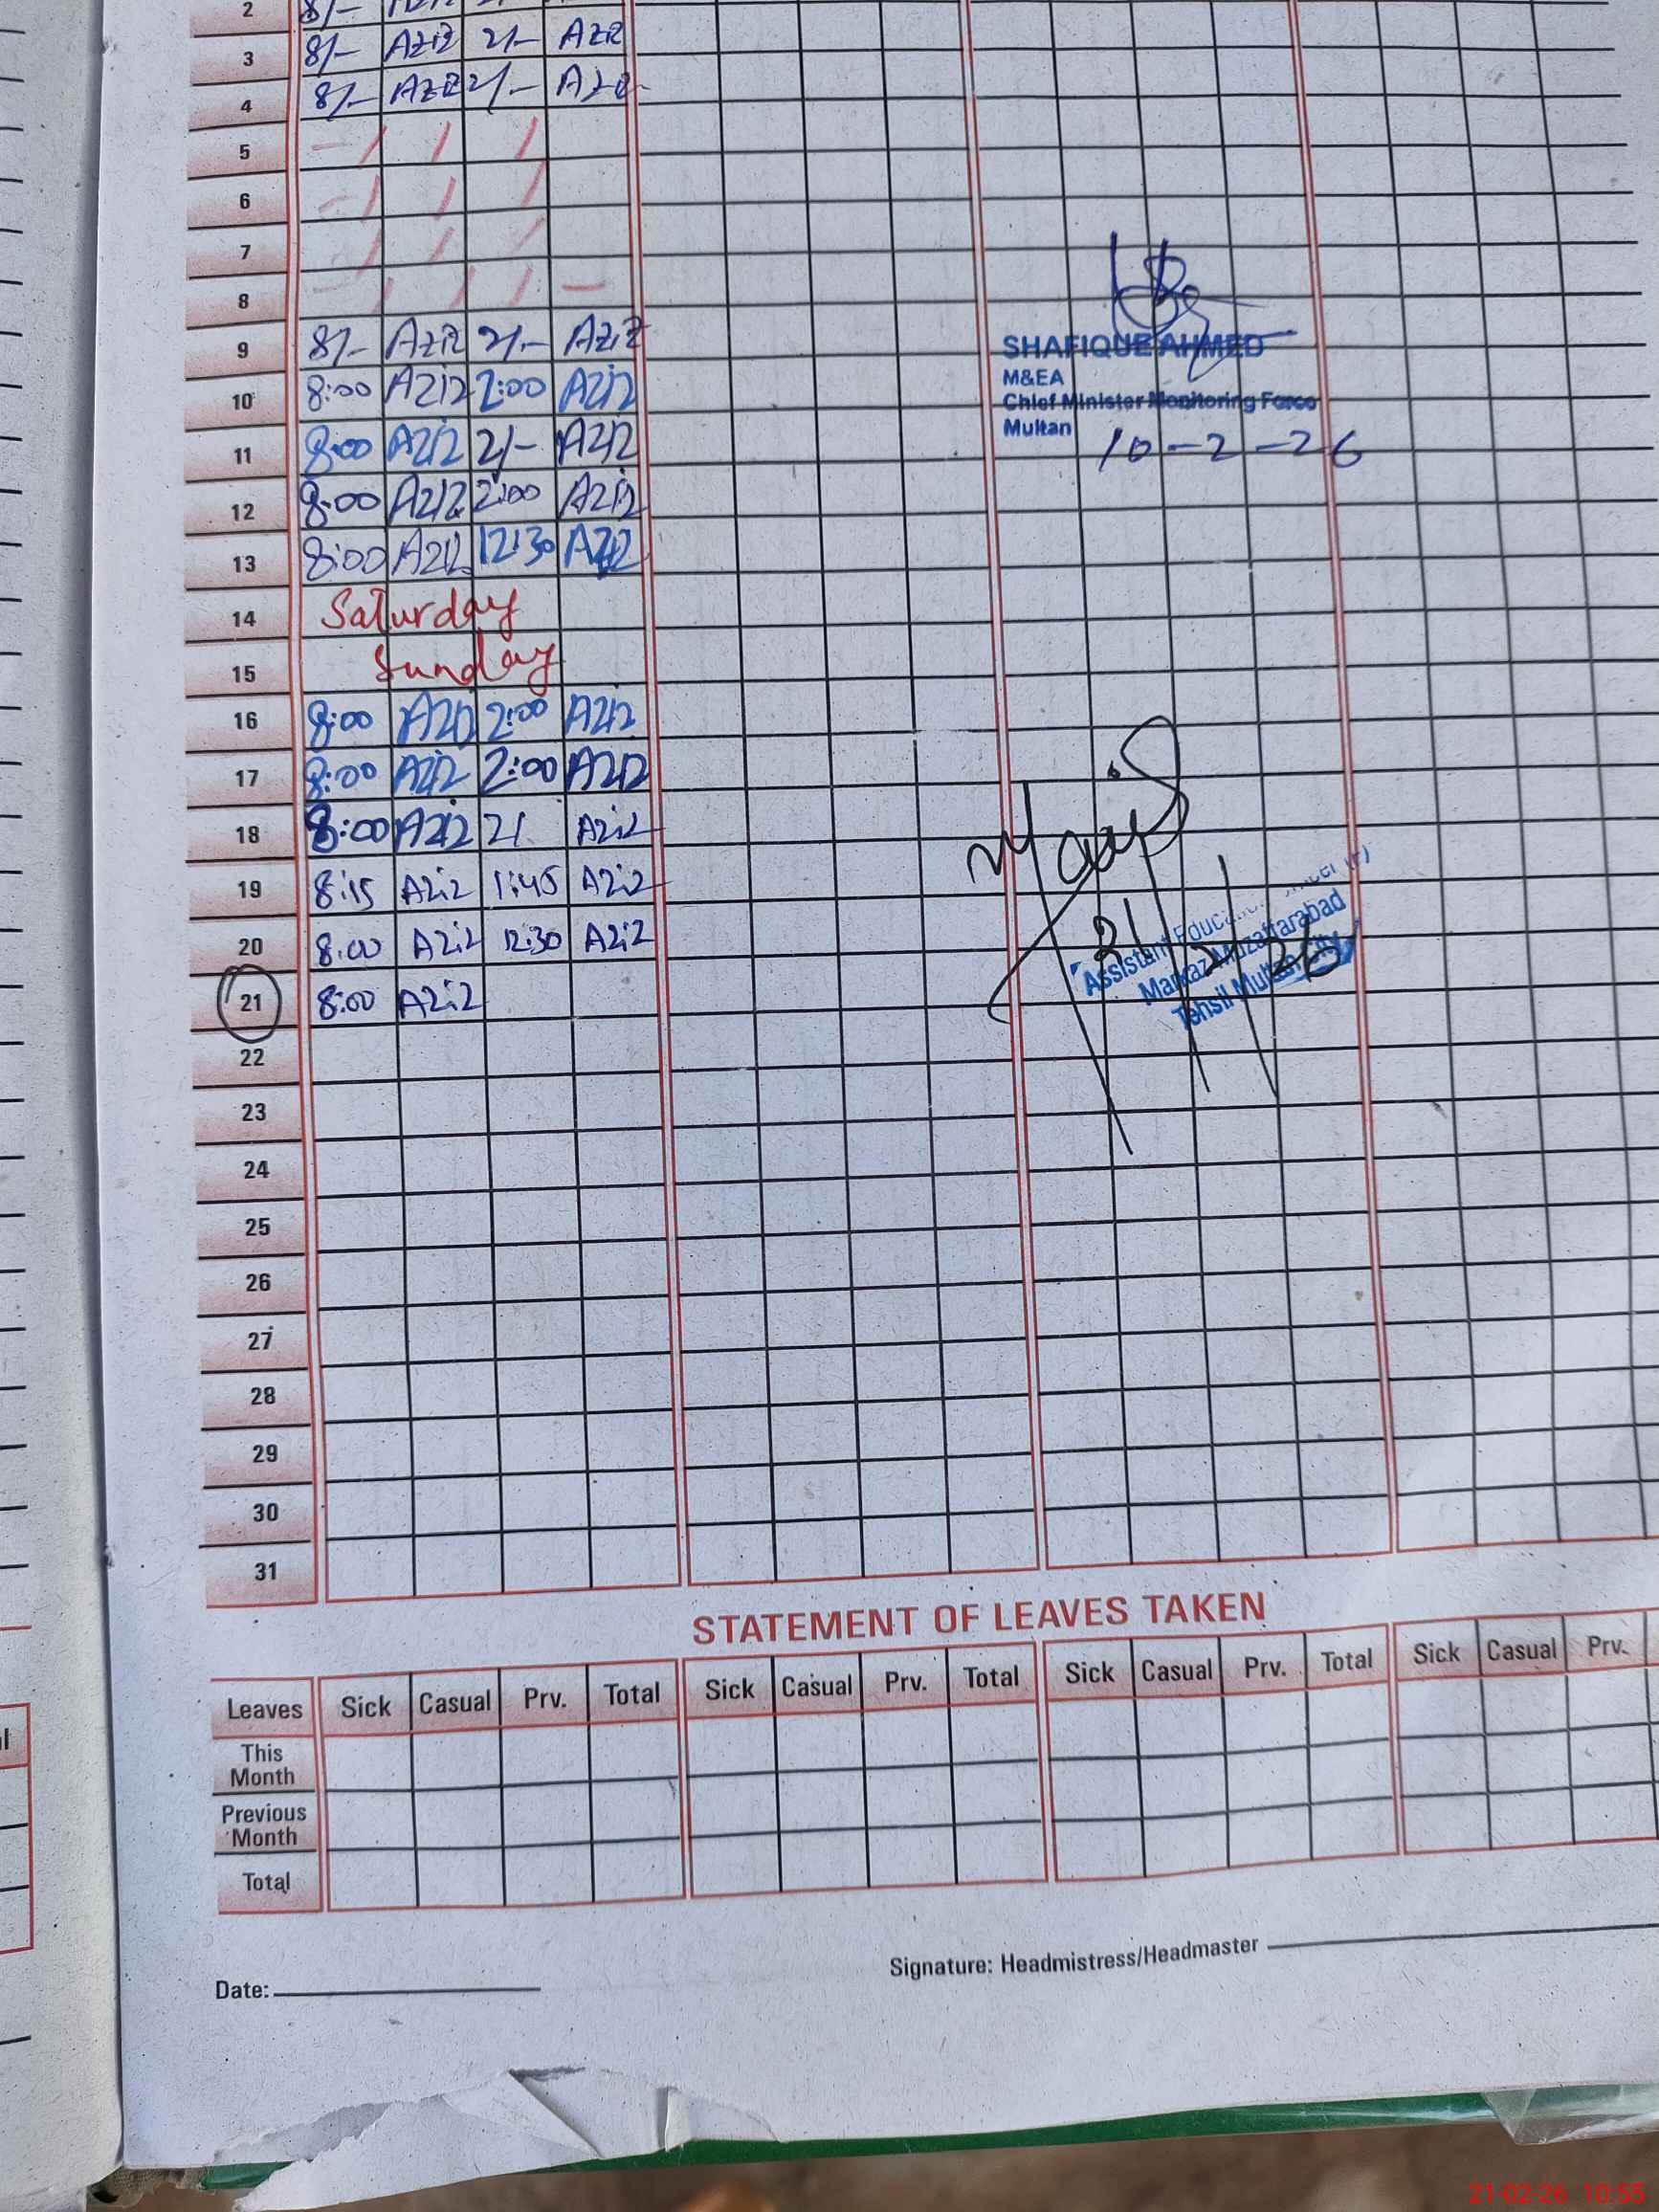 2 8/-
3 8/- Aziz 2/- Aziz
4 8/- Aziz 2/- Aziz
5
6
7
8
9 8/- Aziz 2/- Aziz
10 8:00 Aziz 2:00 Aziz
11 8:00 Aziz 2/- Aziz
12 8:00 Aziz 2:00 Aziz
13 8:00 Aziz 12:30 Aziz
14 Saturday
15 Sunday
16 8:00 Aziz 2:00 Aziz
17 8:00 Aziz 2:00 Aziz
18 8:00 Aziz 2/ Aziz
19 8:15 Aziz 1:45 Aziz
20 8:00 Aziz 12:30 Aziz
21 8:00 Aziz
22
23
24
25
26
27
28
29
30
31
SHAFIQUE AHMED
M&EA
Chief Minister Monitoring Force
Multan
10-2-26
Assistant Education (F)
Markaz Muzaffarabad
Tehsil Multan City
STATEMENT OF LEAVES TAKEN
Leaves Sick Casual Prv. Total Sick Casual Prv. Total Sick Casual Prv. Total Sick Casual Prv.
This Month
Previous Month
Total
Date:
Signature: Headmistress/Headmaster
21-02-26 10:55